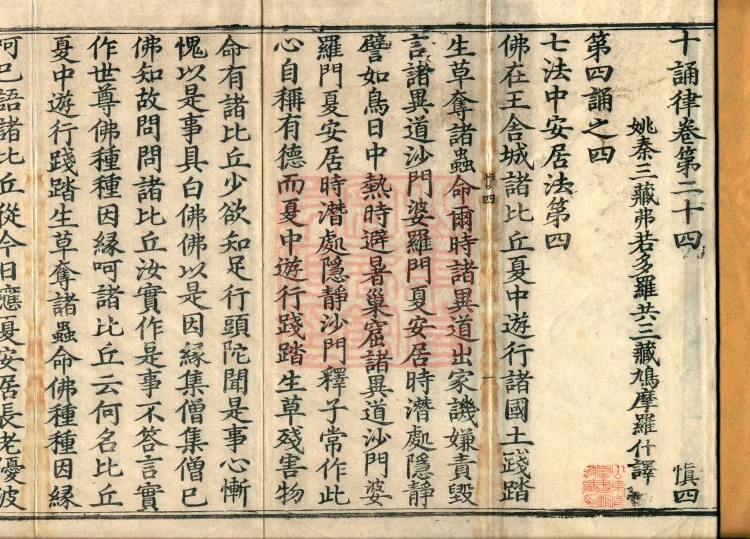 十誦律卷第二十四 慎四
姚秦三藏弗若多羅共三藏鳩摩羅什譯
第四誦之四
七法中安居法第四
佛在王舍城諸比丘夏中遊行諸國土踐踏
生草奪諸蟲命爾時諸異道出家譏嫌責毀
慎四
一
言諸異道沙門婆羅門夏安居時潛處隱靜
譬如鳥日中熱時避暑巢窟諸異道沙門婆
羅門夏安居時潛處隱靜沙門釋子常作此
心自稱有德而夏中遊行踐踏生草殘害物
命有諸比丘少欲知足行頭陀聞是事心慚
愧以是事具白佛佛以是因緣集僧集僧已
佛知故問問諸比丘汝實作是事不答言實
作世尊佛種種因緣呵諸比丘云何名比丘
夏中遊行踐踏生草奪諸蟲命佛種種因緣
呵已語諸比丘從今日應夏安居長老優波